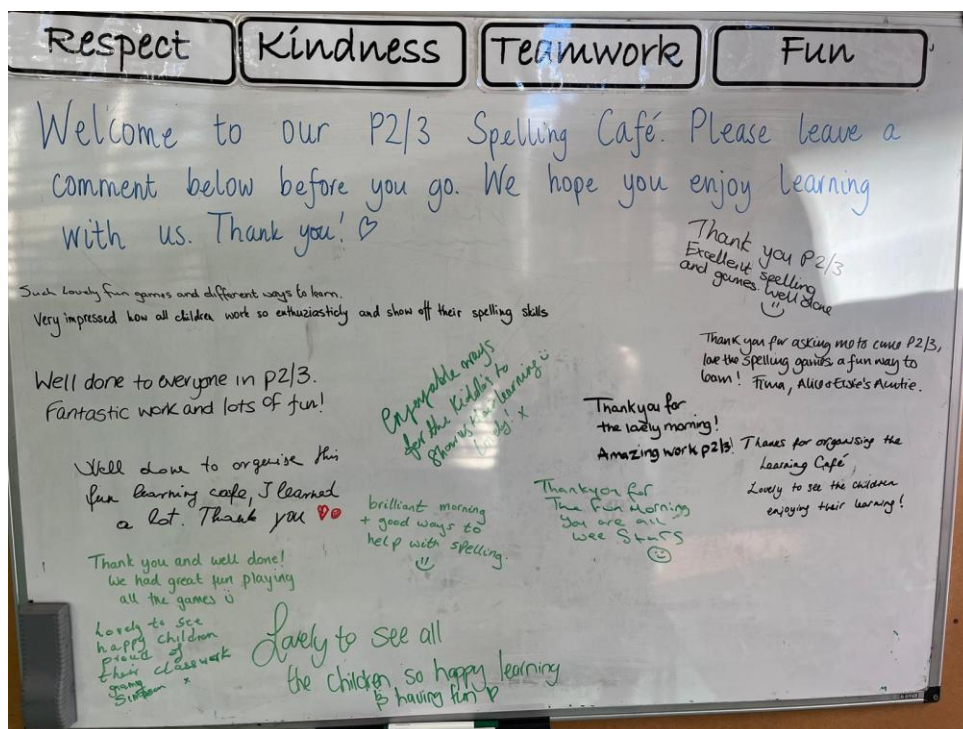 Respect
Kindness
Teamwork
Fun
Welcome to our P2/3 Spelling Café. Please leave a
comment below before you go. We hope you enjoy learning
with us. Thank you!
Thank you P2/3
Excellent spelling
and games well done
Such lovely fun games and different ways to learn.
Very impressed how all children work so enthuziasticly and show off their spelling skills
Thank you for asking me to come P2/3,
love the spelling games a fun way to
learn! Fiona, Alice & Elsie's Auntie.
Well done to everyone in P2/3.
Fantastic work and lots of fun!
Enjoyable ways
for the kiddies to
show us their learning
Lovely! x
Thankyou for
the lovely morning!
Amazing work p2/3!
Thanks for organising the
Learning Café,
Lovely to see the children
enjoying their learning!
Well done to orgenise this
fun learning cafe, I learned
a lot. Thank you
brilliant morning
+ good ways to
help with spelling.
Thankyou for
The Fun Morning
You are all
wee Stars
Thank you and well done!
We had great fun playing
all the games
Lovely to see
happy children
proud of
their classwork
x
Lovely to see all
the children so happy learning
& having fun